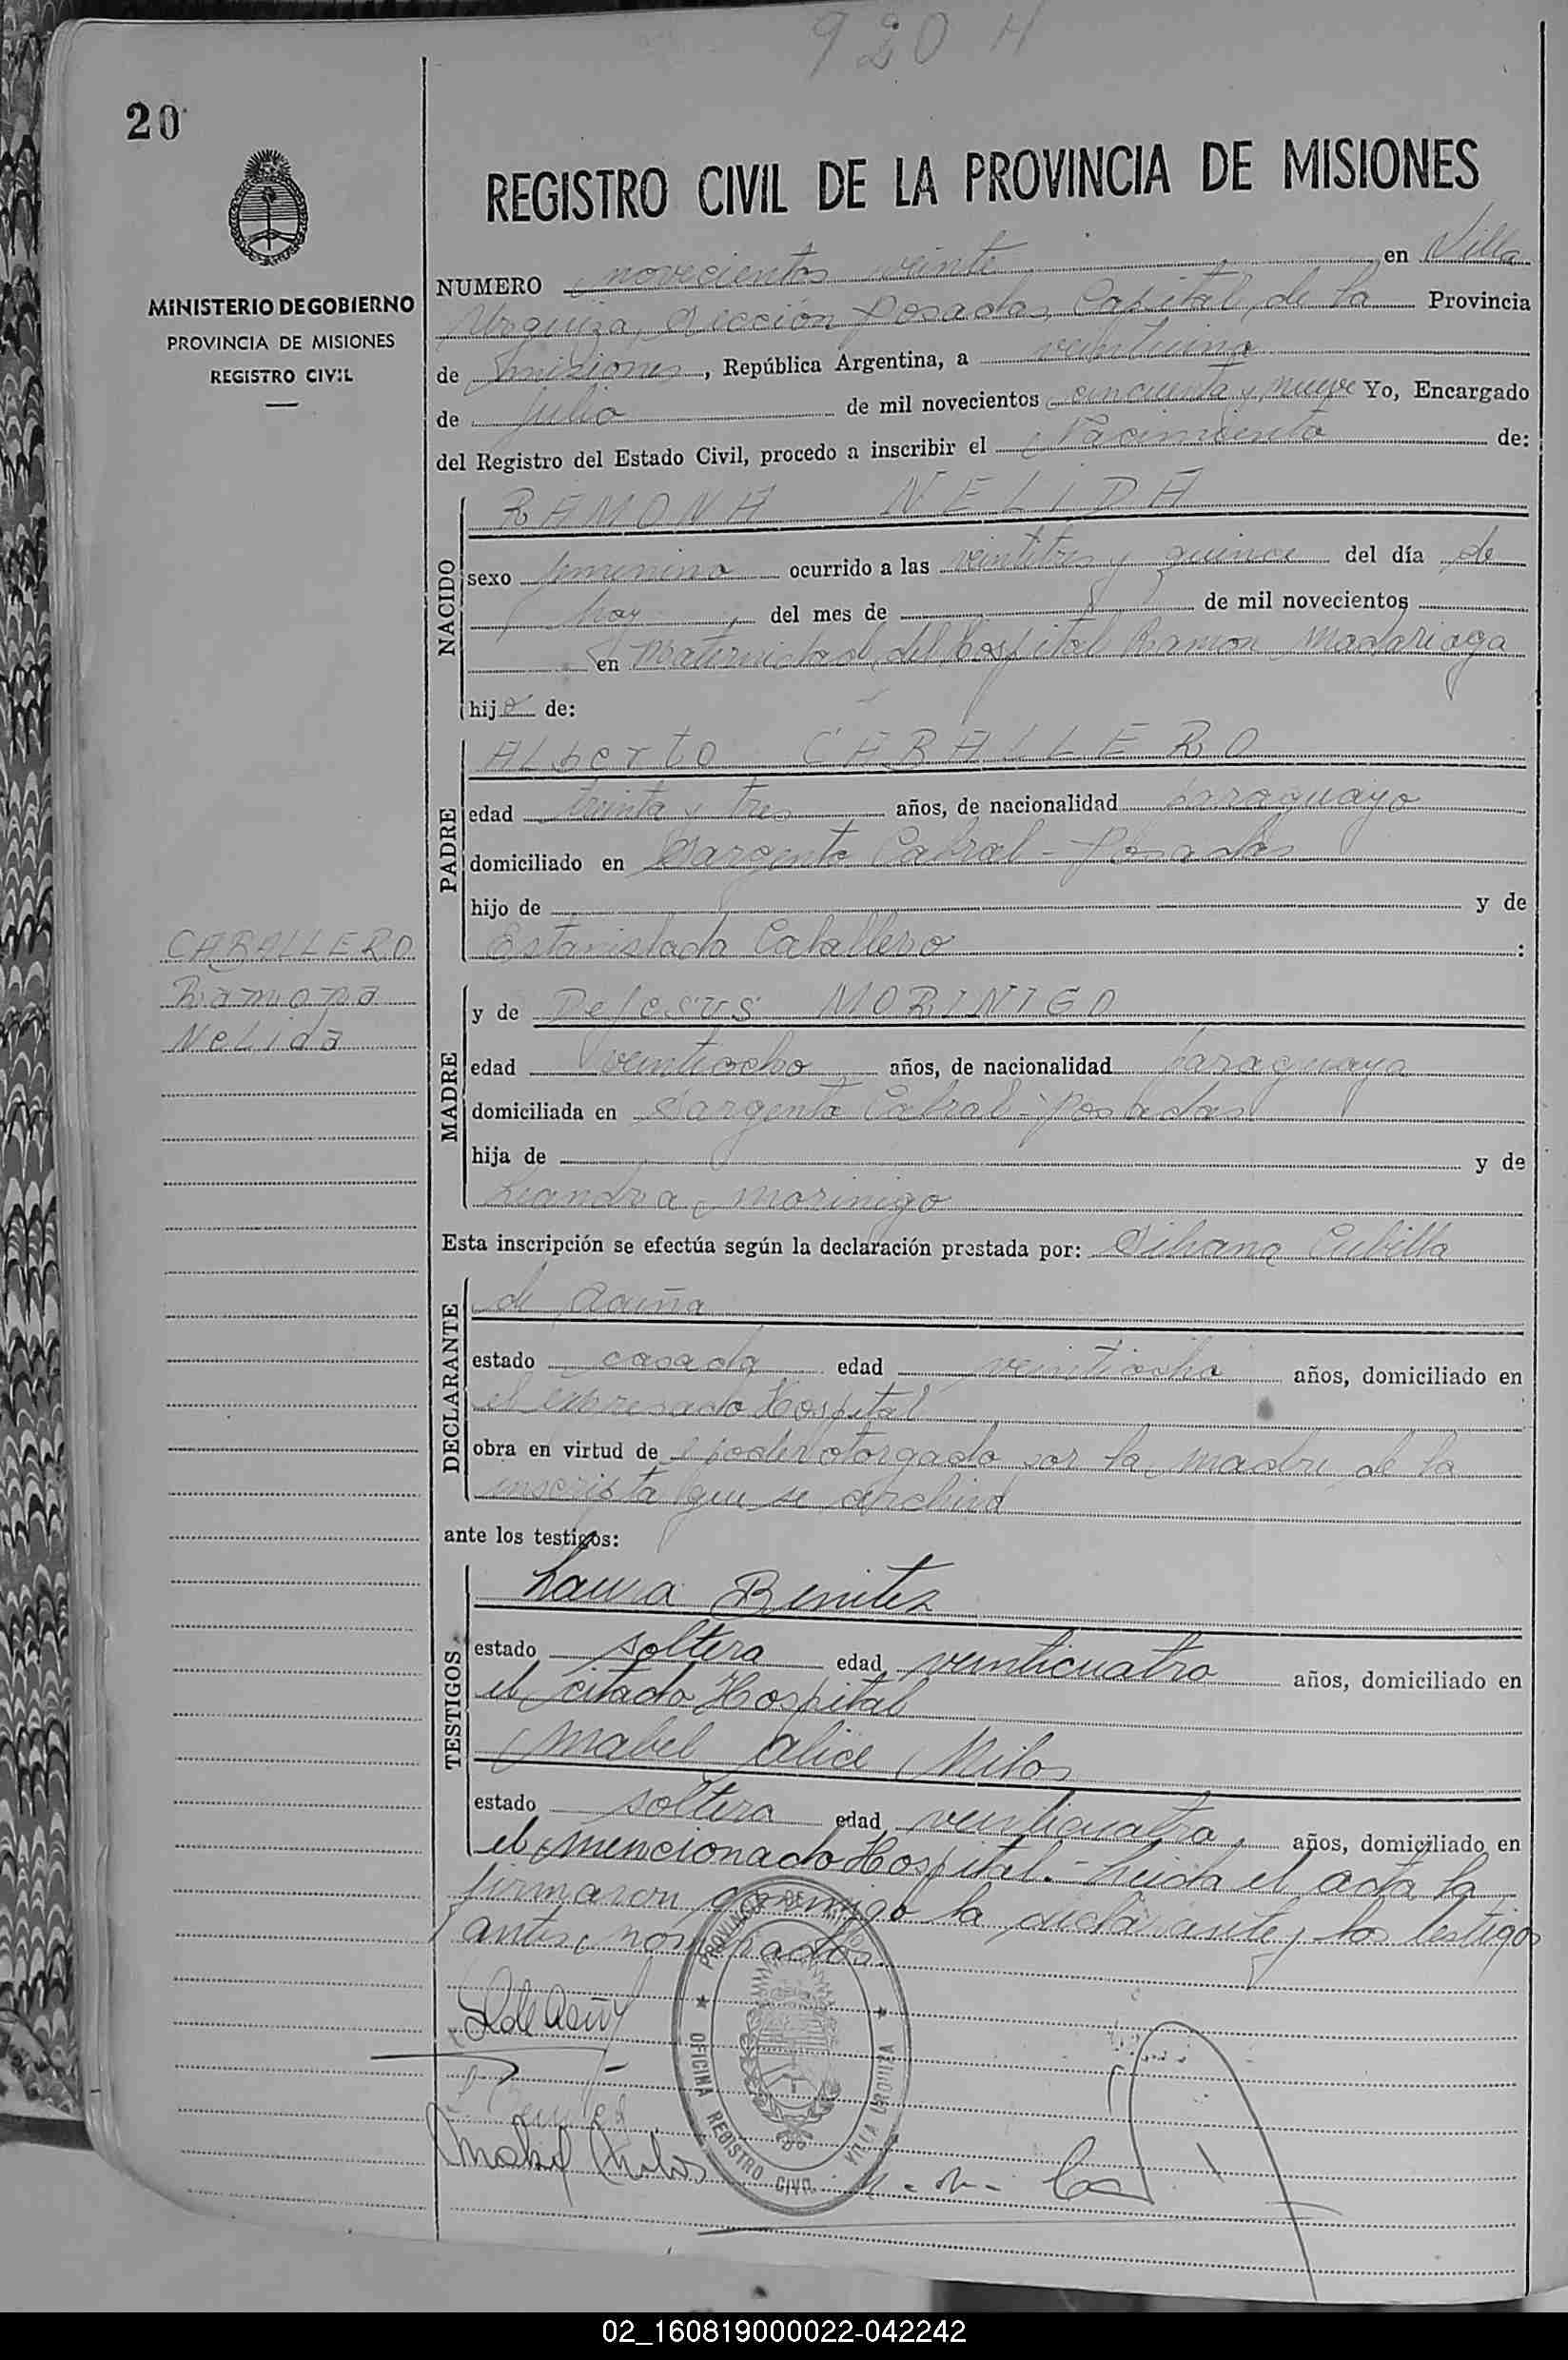 920 H
20
REGISTRO CIVIL DE LA PROVINCIA DE MISIONES
MINISTERIO DE GOBIERNO
PROVINCIA DE MISIONES
REGISTRO CIVIL
NUMERO novecientos veinte en Villa
Urquiza, Sección Posadas, Capital de la Provincia
de Misiones, República Argentina, a veintiuno
de Julio de mil novecientos cincuenta y nueve Yo, Encargado
del Registro del Estado Civil, procedo a inscribir el Nacimiento de:
NACIDO
RAMONA NELIDA
sexo femenino ocurrido a las veintitres y quince del día de
hoy del mes de de mil novecientos
en Maternidad del Hospital Ramon Madariaga
hija de:
PADRE
ALberto CABALLERO
edad treinta y tres años, de nacionalidad paraguayo
domiciliado en Sargento Cabral - Posadas
hijo de y de
Estanislada Caballero :
CABALLERO
Ramona
NeLida
MADRE
y de DeJesus MORINIGO
edad veintiocho años, de nacionalidad paraguaya
domiciliada en Sargento Cabral - Posadas
hija de y de
Leandra Morinigo
Esta inscripción se efectúa según la declaración prestada por: Silvana Cubilla
DECLARANTE
de Acuña
estado casada edad veintiocho años, domiciliado en
el expresado Hospital
obra en virtud de poder otorgado por la madre de la
inscripta que se archiva
ante los testigos:
TESTIGOS
Laura Benitez
estado soltera edad veinticuatro años, domiciliado en
el citado Hospital
Mabel Alice Milos
estado soltera edad veinticuatro, años, domiciliado en
el mencionado Hospital.- Leida el acta la
firmaron conmigo la declarante y los testigos
antes nombrados.
S de Acuña
Mabel Milos
PROVINCIA DE MISIONES
OFICINA REGISTRO CIVIL VILLA URQUIZA
02_160819000022-042242